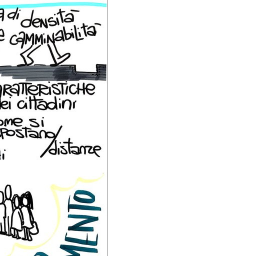 di densità
e camminabilità
ratteristiche
ei cittadini
ome si
postano/
distanze
i
mento